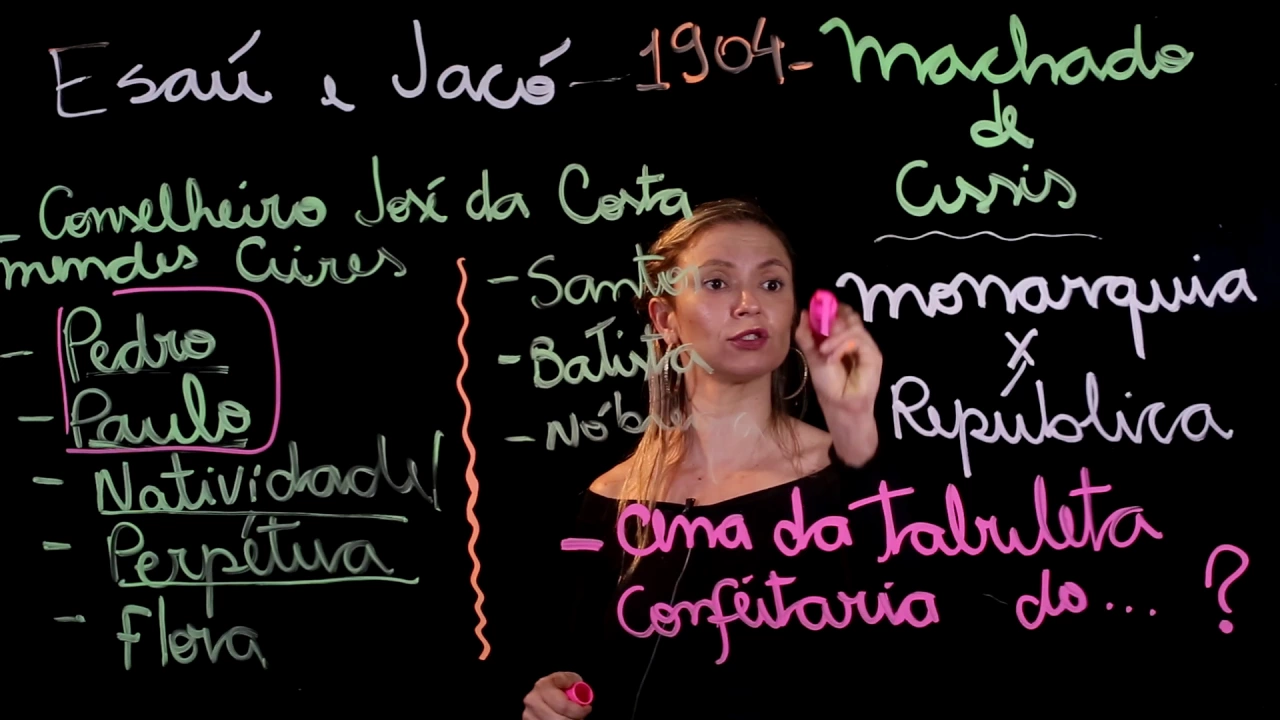 Esaú e Jacó - 1904 - Machado
de
Assis
- Conselheiro José da Costa
mendes Aires
- Pedro
- Paulo
- Natividade
- Perpétua
- Flora
- Santos
- Batista
monarquia
x
República
- cena da Tabuleta
Confeitaria do... ?